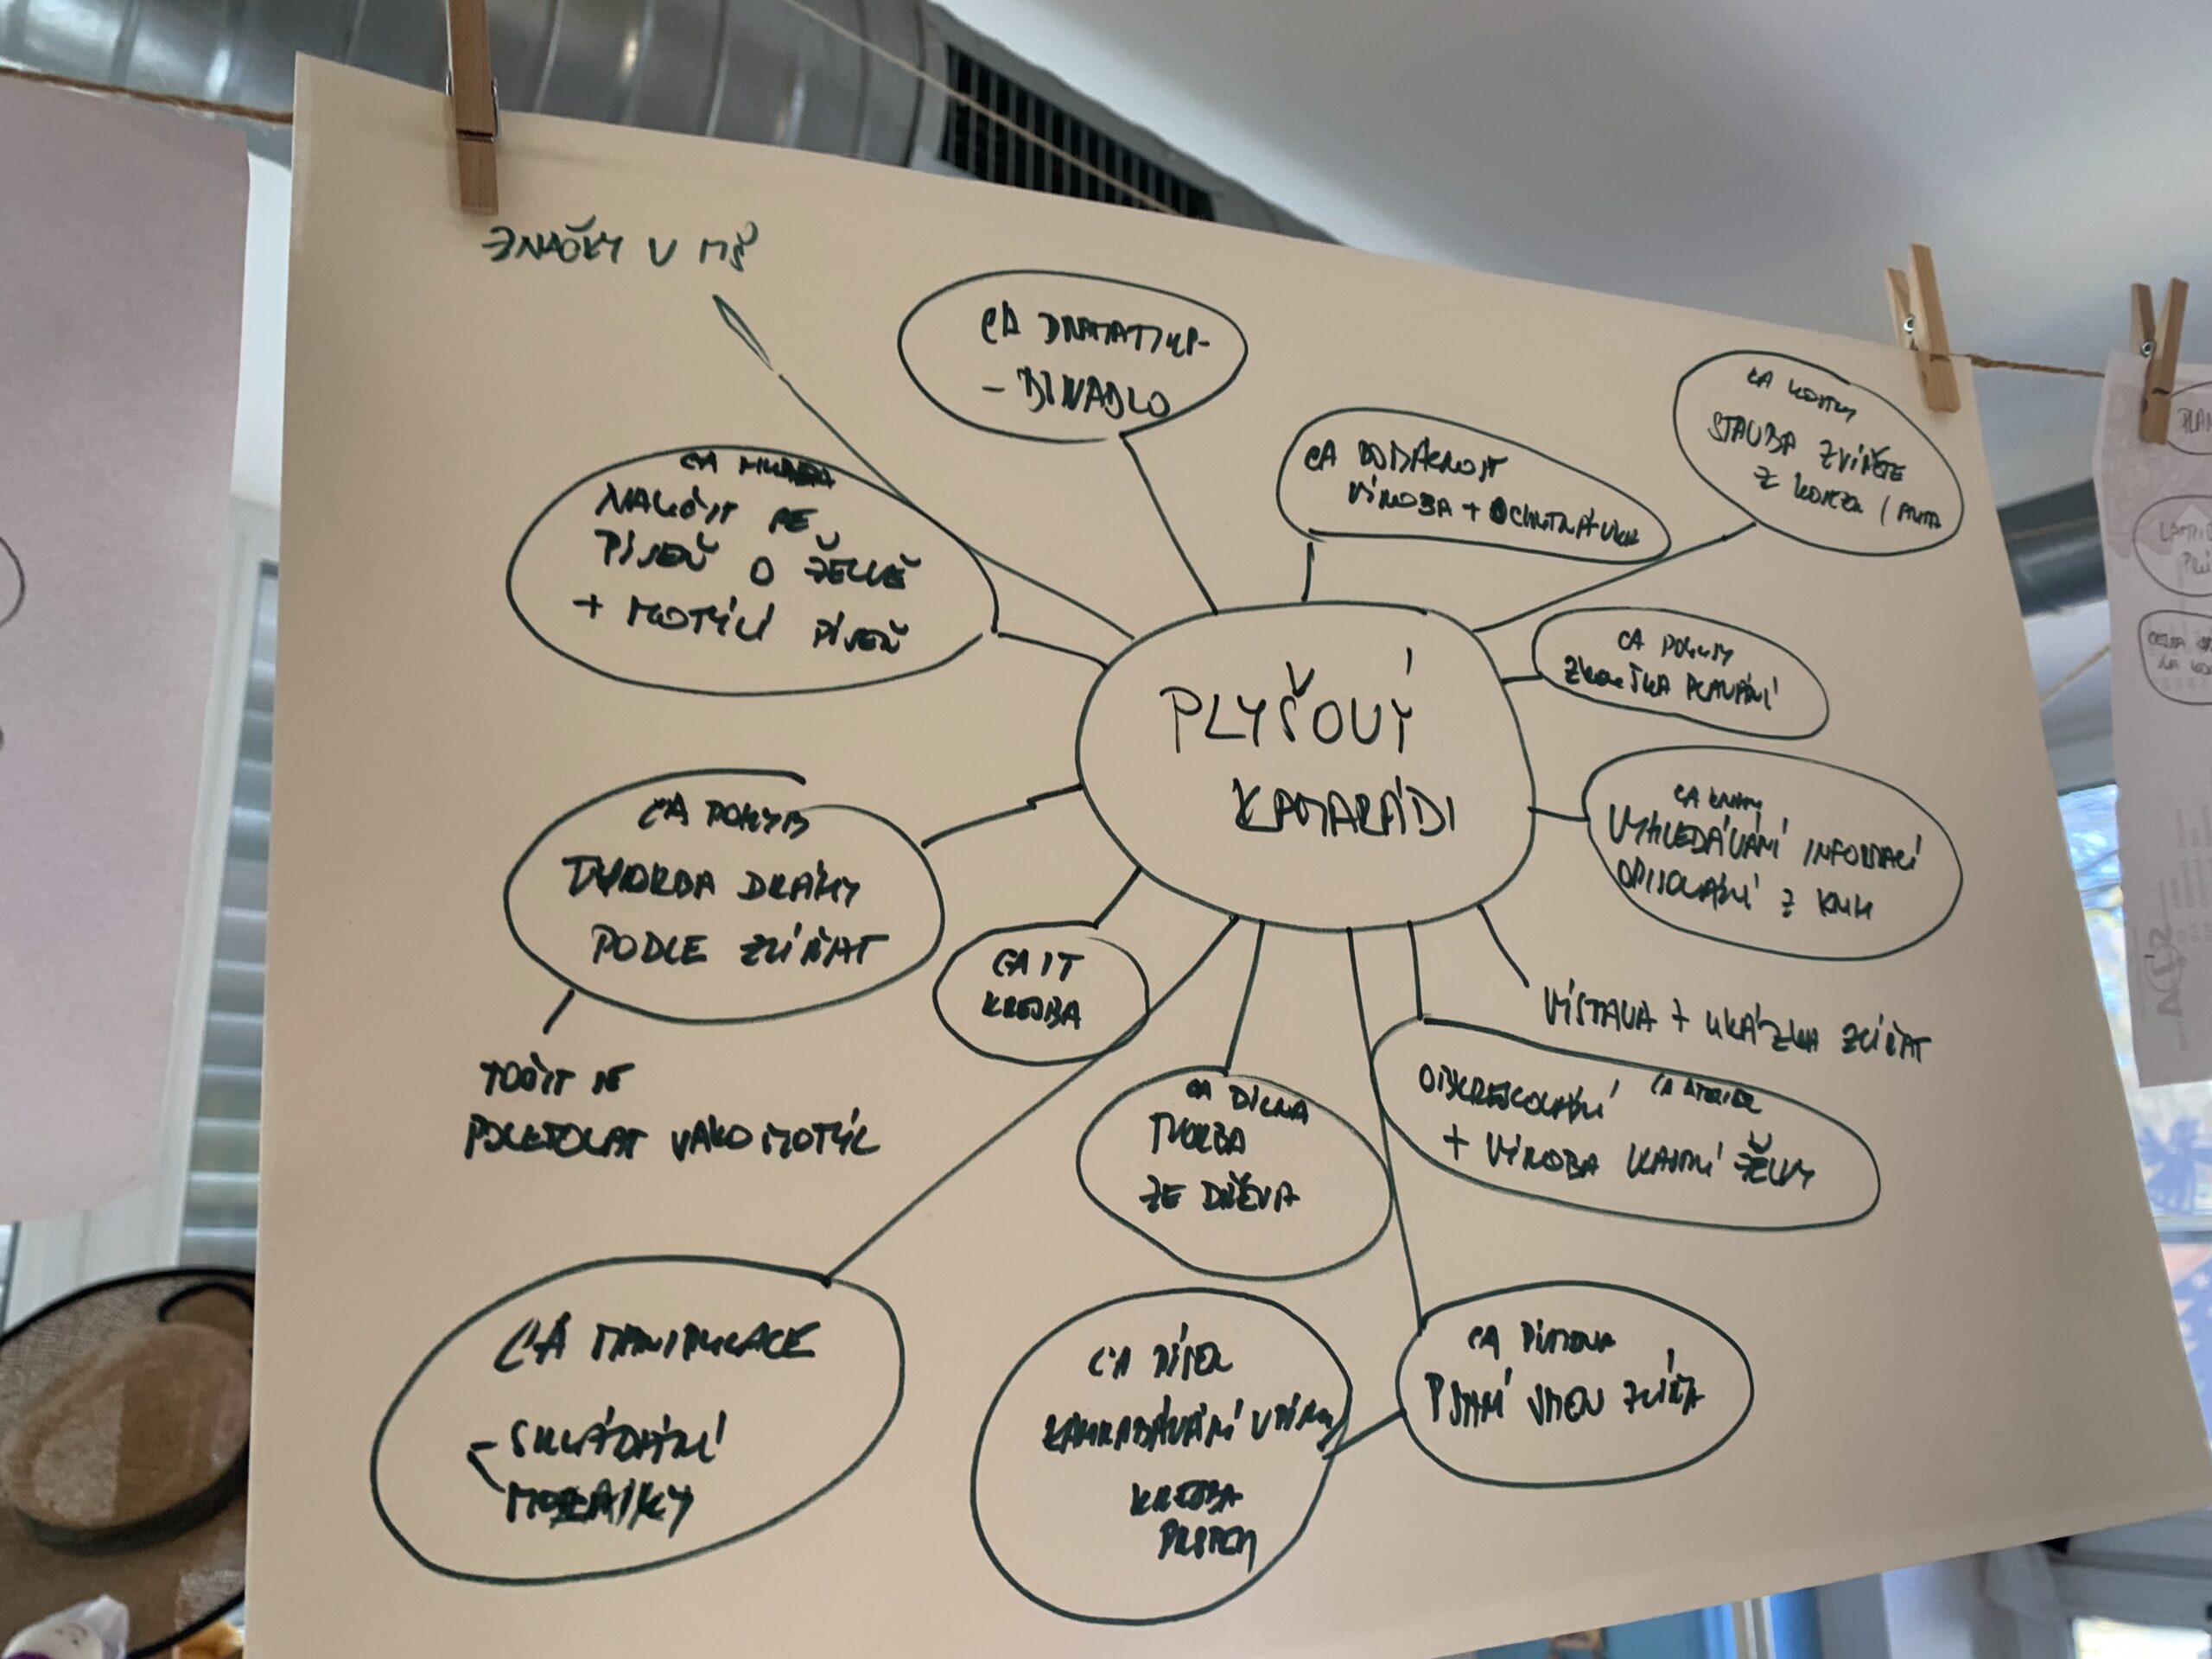 ZNAČKY V MŠ
CA DRAMATIKA
- DIVADLO
CA KOSTKY
STAVBA ZVÍŘETE
Z KOSTEK /
CA DOMÁCNOST
VÝROBA + OCHUTNÁVKA
CA HUDBA
NAUČIT SE
PÍSEŇ O ŽELVĚ
+ MOTÝLÍ PÍSEŇ
CA POKUSY
ZKOUŠKA PLAVÁNÍ
PLYŠOVÝ
KAMARÁDI
CA KNIHY
VYHLEDÁVÁNÍ INFORMACÍ
OPISOVÁNÍ Z KNIH
CA POHYB
TVORBA DRÁHY
PODLE ZVÍŘAT
CA IT
KRESBA
VÝSTAVA + UKÁZKA ZVÍŘAT
TOČIT SE
POLETOVAT JAKO MOTÝL
CA DÍLNA
TVORBA
ZE DŘEVA
OBKRESLOVÁNÍ CA ATELIER
+ VÝROBA ŽELVY
CA MANIPULACE
- SKLÁDÁNÍ
MOZAIKY
CA PÍSEK
ZAHRABÁVÁNÍ V PÍSKU
KRESBA
PRSTEM
CA PÍSMENA
PSANÍ JMEN ZVÍŘAT
PLAN